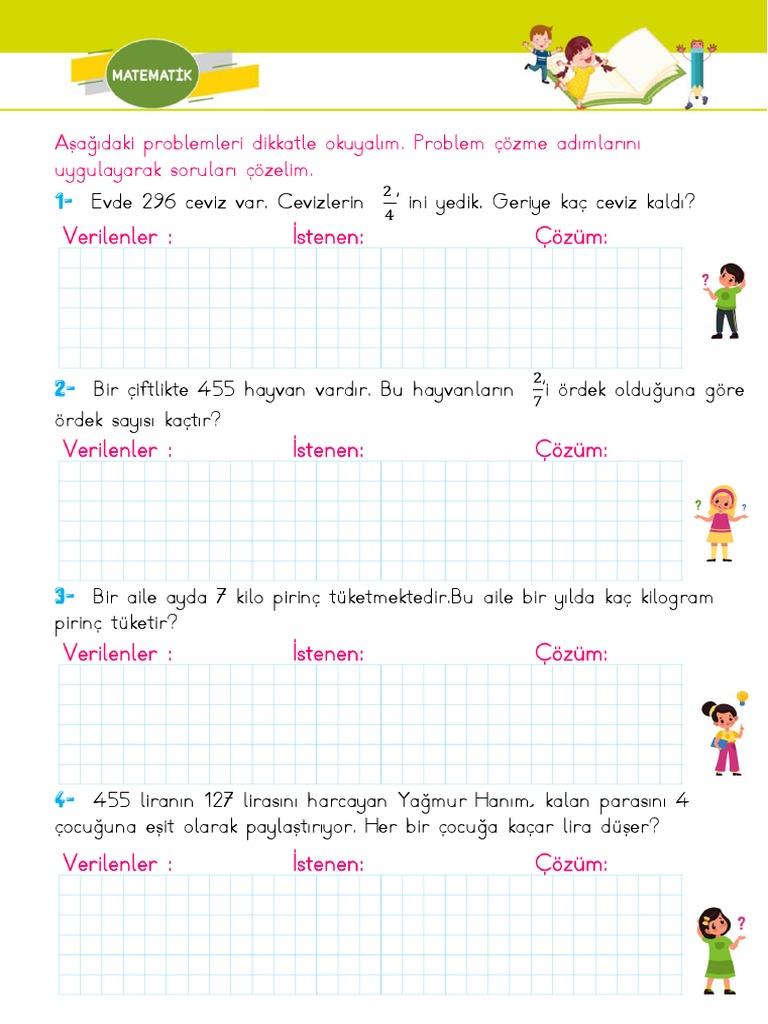 MATEMATİK
Aşağıdaki problemleri dikkatle okuyalım. Problem çözme adımlarını
uygulayarak soruları çözelim.
1- Evde 296 ceviz var. Cevizlerin 2/4' ini yedik. Geriye kaç ceviz kaldı?
Verilenler : İstenen: Çözüm:
?
2- Bir çiftlikte 455 hayvan vardır. Bu hayvanların 2/7'i ördek olduğuna göre
ördek sayısı kaçtır?
Verilenler : İstenen: Çözüm:
? ?
3- Bir aile ayda 7 kilo pirinç tüketmektedir.Bu aile bir yılda kaç kilogram
pirinç tüketir?
Verilenler : İstenen: Çözüm:
4- 455 liranın 127 lirasını harcayan Yağmur Hanım, kalan parasını 4
çocuğuna eşit olarak paylaştırıyor. Her bir çocuğa kaçar lira düşer?
Verilenler : İstenen: Çözüm:
?